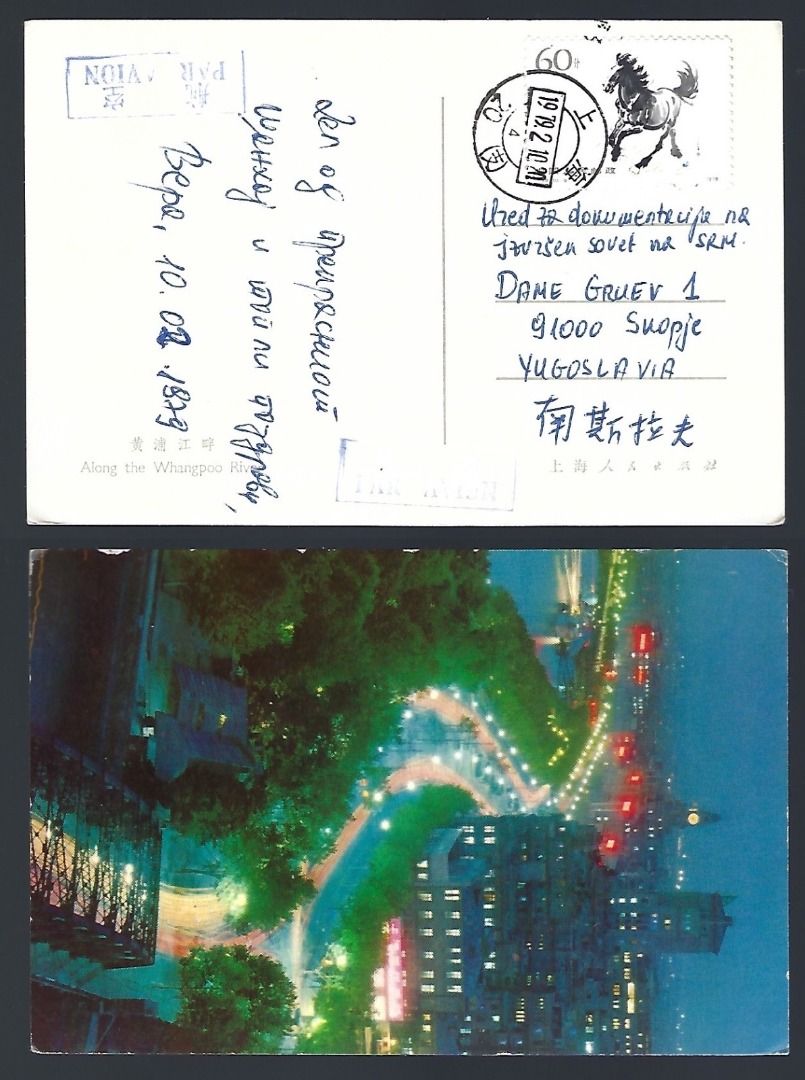 航空
PAR AVION
60分
上海
1979.2.10.20
Дел од прекрасниот
Шангхај и топли поздрави,
Вера, 10.02.1979
Ured za dokumentacija na
izvršen sovet na SRM.
DAME GRUEV 1
91000 Skopje
YUGOSLAVIA
南斯拉夫
黄浦江畔
Along the Whangpoo River
PAR AVION
上海人民出版社